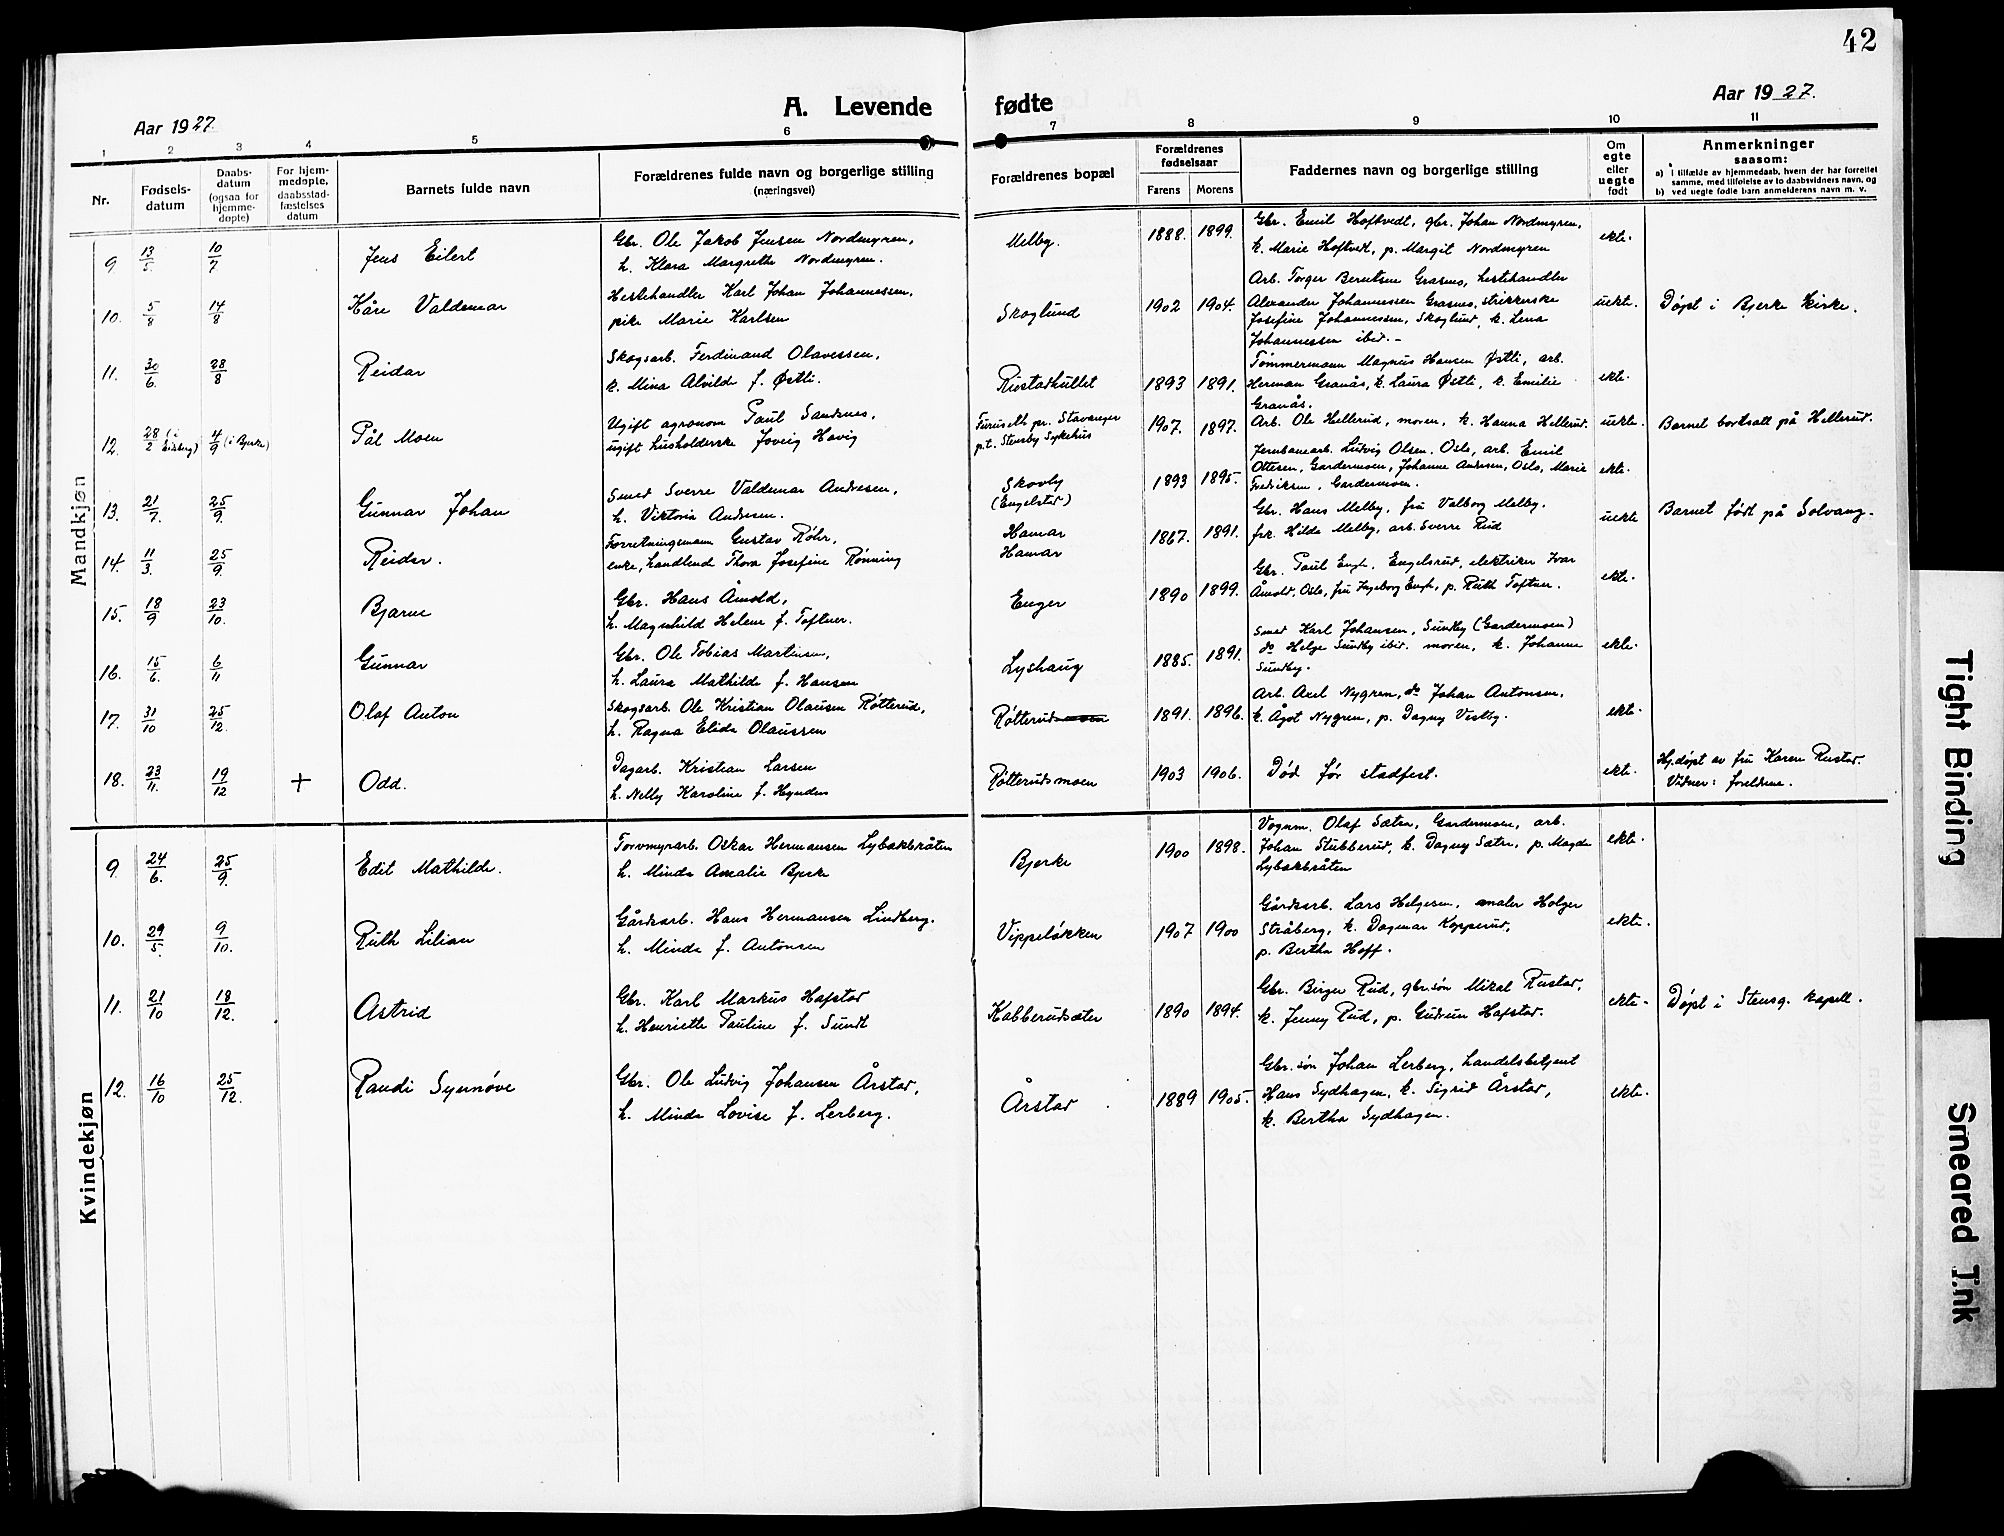 42
Aar 1927.
A. Levende fødte
Aar 1927.
1 2 3 4 5 6 7 8 9 10 11
Nr.
Fødsels-
datum
Daabs-
datum
(ogsaa for
hjemme-
døpte)
For hjem-
medøpte,
daabsstad-
fæstelses
datum
Barnets fulde navn
Forældrenes fulde navn og borgerlige stilling
(næringsvei)
Forældrenes bopæl
Forældrenes
fødselsaar
Farens Morens
Faddernes navn og borgerlige stilling
Om
egte
eller
uegte
født
Anmerkninger
saasom:
a) I tilfælde av hjemmedaab, hvem der har forrettet
samme, med tilføielse av to daabsvidnes navn, og
b) ved uegte fødte barn anmelderens navn m. v.
Mandkjøn
9 13/5 10/7 Jens Eilert
Gbr. Ole Jakob Jensen Nordmyren,
h. Klara Margrethe Nordmyren.
Melby. 1888. 1899.
Gbr. Emil Hoftvedt, gbr. Johan Nordmyren,
k. Marie Hoftvedt, p. Margit Nordmyren
ekte.
10. 5/8 14/8 Kåre Valdemar
Hestehandler Karl Johan Johannessen,
pike Marie Karlsen
Skoglund 1902 1904.
Arb. Torger Berntsen Grasmo, hestehandler
Alexander Johannessen Grasmo, strikkerske
Josefine Johannessen, Skoglund, k. Lena
Johannessen ibid.-
uekte. Døpt i Bjerke Kirke.
11. 30/6. 28/8 Reidar
Skogsarb. Ferdinand Olavessen,
k. Mina Alvilde f. Østli.
Rustadhullet 1893 1891.
Tømmermann Magnus Hansen Østli, arb.
Herman Granås, k. Laura Østli, k. Emilie
Granås.
ekte.
12. 28/2 (i Eidsberg) 4/9 (i Bjerke) Pål Moen
Ugift agronom Paul Sandnes,
ugift husholderske Joveig Havig
Furuseth pr. Stavanger
p.t. Stensby Sykehus
1907. 1897.
Arb. Ole Hellerud, moren, k. Hanna Hellerud.
uekte. Barnet bortsatt på Hellerud.
13. 21/7. 25/9. Gunnar Johan
Smed Sverre Valdemar Andresen,
h. Viktoria Andresen.
Skovly
(Engelstad)
1893 1895.
Jernbanearb. Ludvig Olsen, Oslo, arb. Emil
Ottesen, Gardermoen, Johanne Andresen, Oslo, Marie
Fredriksen, Gardermoen.
ekte.
14. 11/3. 25/9. Reidar.
Forretningsmann Gustav Røhr,
enke, handlend Thora Josefine Rønning
Hamar
Hamar
1867. 1891.
Gbr. Hans Melby, fru Valborg Melby,
frk. Hilda Melby, arb. Sverre Rud
uekte Barnet født på Solvang.
15. 18/9 23/10. Bjarne
Gbr. Hans Åmold,
h. Magnhild Helene f. Toftner.
Enger 1890 1899.
Gbr. Paul Engh, Engelsrud, elektriker Ivar
Åmold, Oslo, fru Ingeborg Engh, p. Ruth Toftner.
ekte.
16. 15/6. 6/11 Gunnar
Gbr. Ole Tobias Martinsen,
h. Laura Mathilde f. Hansen
Lyshaug 1885. 1891.
Smed Karl Johansen, Sundby (Gardermoen)
do Helge Sundby ibid. moren, k. Johanne
Sundby.
ekte.
17. 31/10 25/12. Olaf Anton
Skogsarb. Ole Kristian Olausen Røtterud,
h. Ragna Elida Olaussen
Røtterudmoen 1891. 1896.
Arb. Axel Nygren, do Johan Antonsen,
k. Ågot Nygren, p. Dagny Vestby.
ekte.
18. 23/11. 19/12 + Odd.
Dagarb. Kristian Larsen
h. Nelly Karoline f. Hynden
Røtterudsmoen 1903 1906.
Død før stadfest.
ekte. Hj.døpt av fru Karen Rustad.
Vidner: foreldrene.
Kvindekjøn
9 24/6. 25/9. Edit Mathilde.
Torvmyrarb. Oskar Hermansen Lybakbråten
h. Minda Amalie Bjerke
Bjerke 1900 1898.
Vognm. Olaf Sætre, Gardermoen, arb.
Johan Stubberud, k. Dagny Sætre, p. Magda
Lybakbråten
ekte.
10. 29/5. 9/10. Ruth Lilian
Gårdsarb. Hans Hermansen Lindberg.
h. Minda f. Antonsen
Vippeløkken 1907 1900
Gårdsarb. Lars Helgesen, maler Holger
Stråberg, k. Dagmar Kopperud,
p. Bertha Hoff.
ekte.
11. 21/10 18/12. Astrid
Gbr. Karl Markus Hafstad
h. Henriette Pauline f. Sundt
Kabberudsæter 1890 1894.
Gbr. Birger Rud, gbr.søn Mikal Rustad,
k. Jenny Rud, p. Gudrun Hafstad.
ekte. Døpt i Stensg. kapell.
12. 16/10 25/12. Randi Synnøve
Gbr. Ole Ludvig Johansen Årstad,
h. Minda Lovise f. Lerberg.
Årstad 1889 1905.
Gbr. søn Johan Lerberg, handelsbetjent
Hans Sydhagen, k. Sigrid Årstad,
k. Bertha Sydhagen.
ekte.
Tight Binding
Smeared Ink